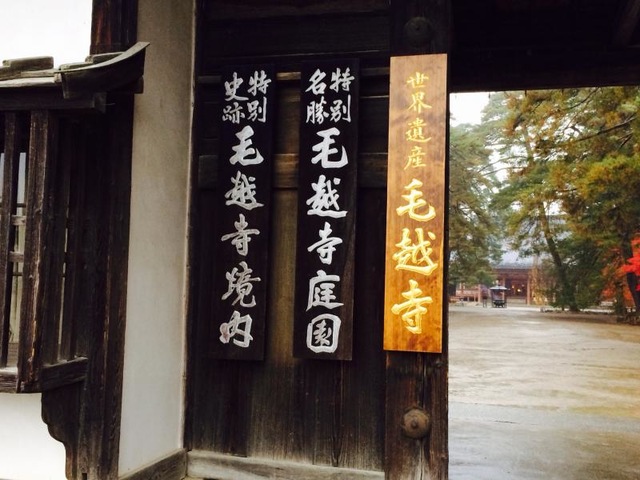 世界遺産 毛越寺
特別
名勝
毛越寺庭園
特別
史跡
毛越寺境内